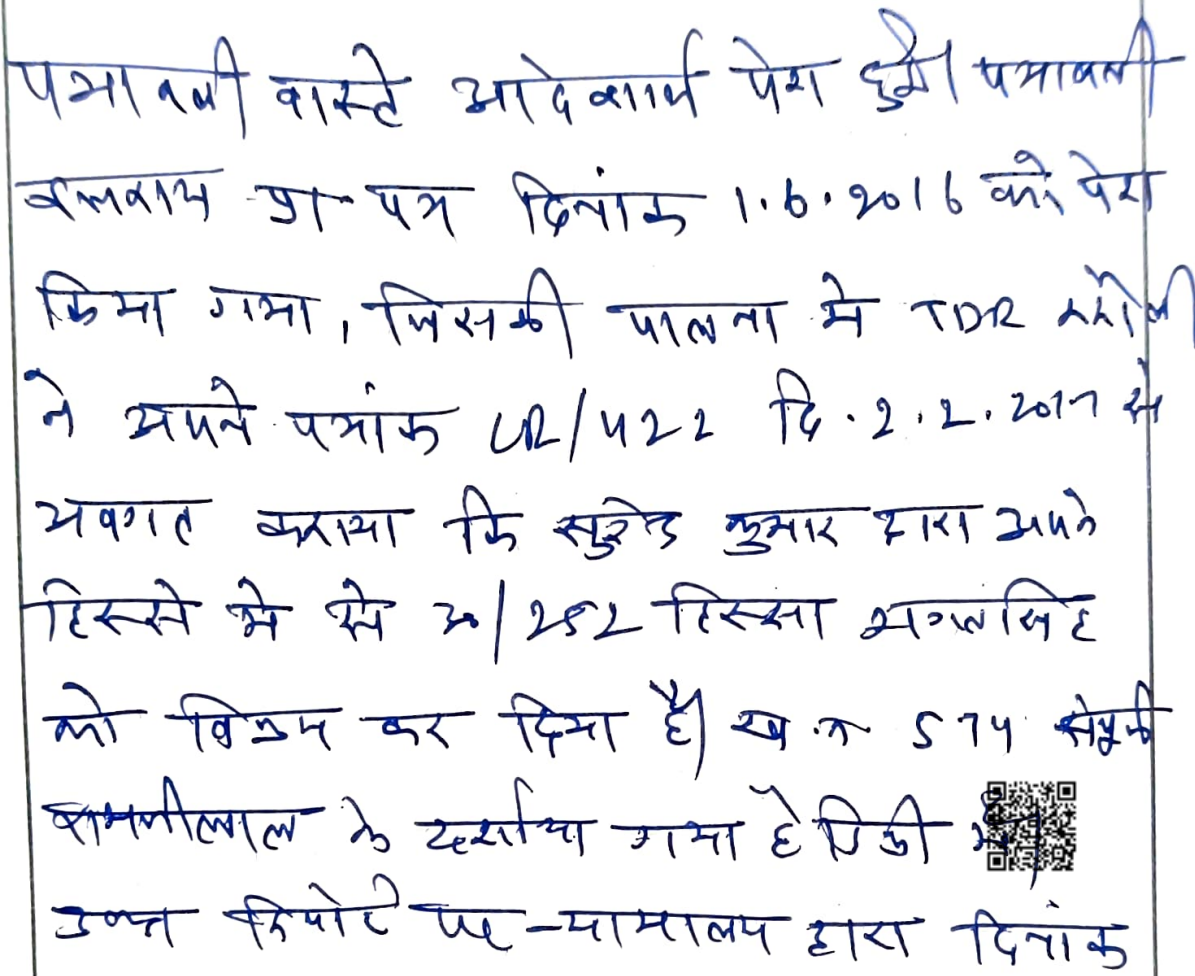 पत्रावली वास्ते आदेशार्थ पेश हुई। पत्रावली
प्रा पत्र दिनांक 1.6.2016 को पेश
किया गया, जिसकी पालना मे TDR
ने अपने पत्रांक LR/422 दि. 2.2.2017 से
अवगत कराया कि सुरेन्द्र कुमार द्वारा अपने
हिस्से मे से 30/252 हिस्सा भगतसिंह
को विक्रय कर दिया है। ख.न 574
के दर्शाया गया है डिक्री मे।
उक्त रिपोर्ट पर न्यायालय द्वारा दिनांक